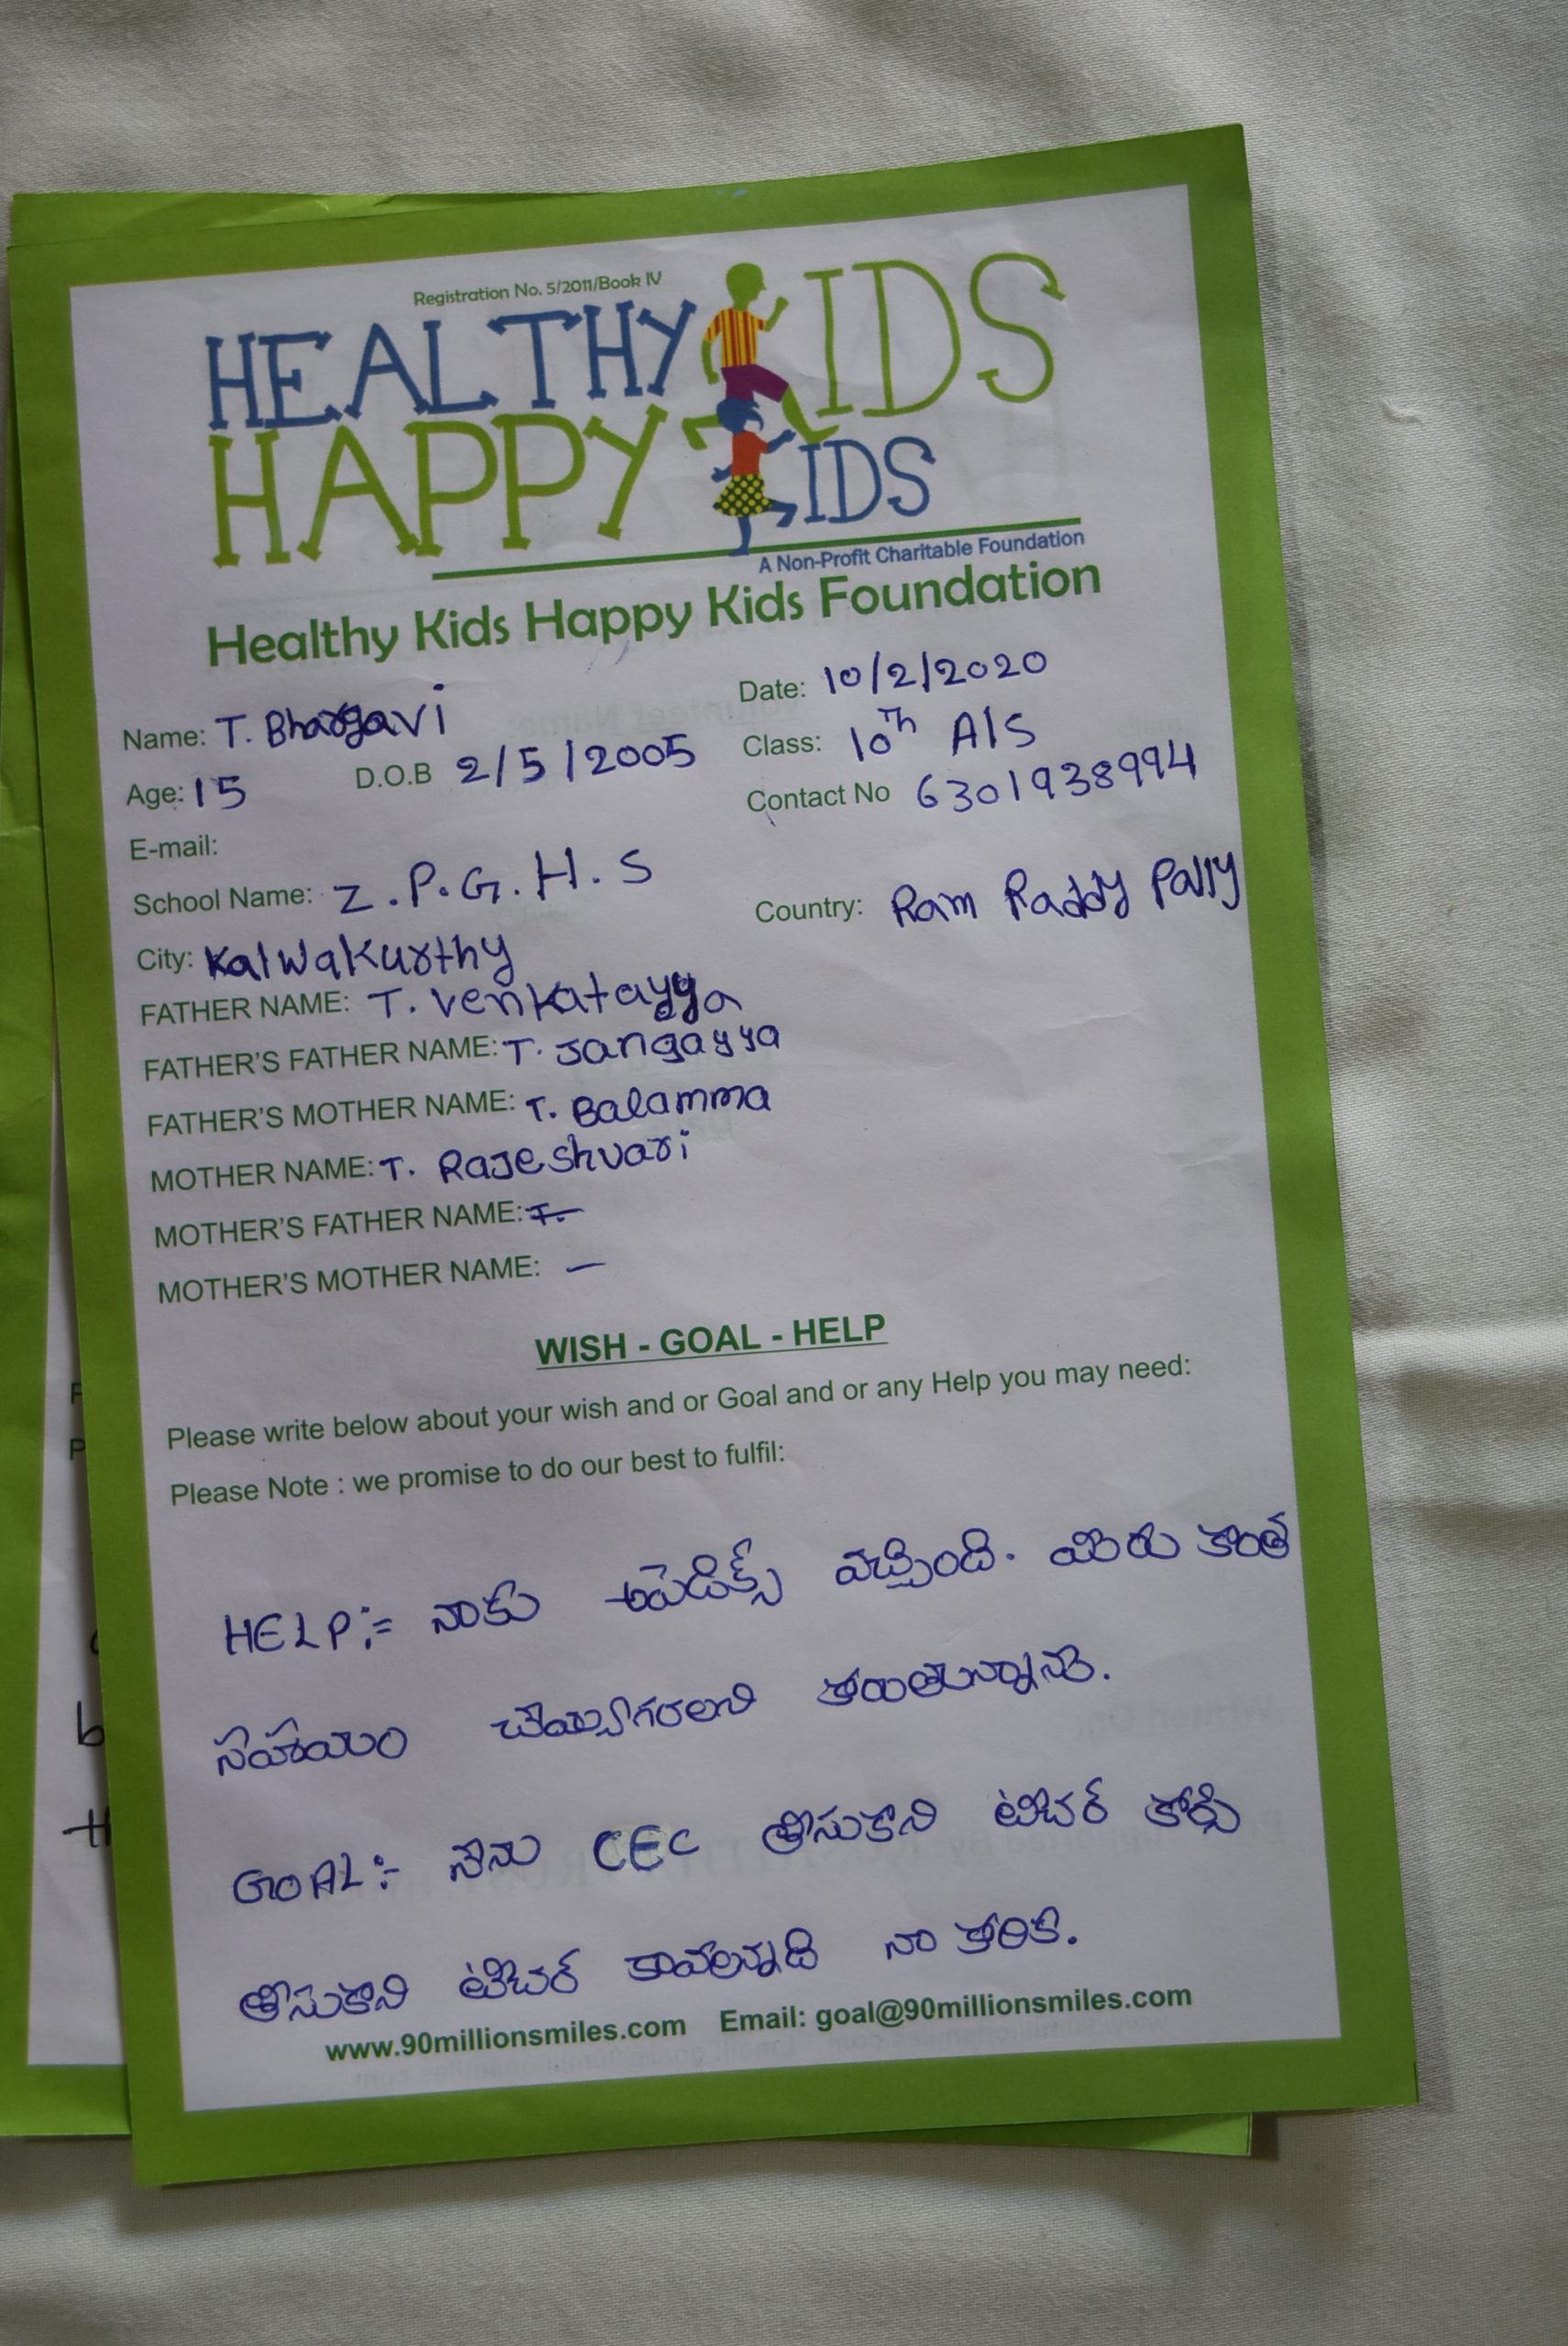 Registration No. 5/2011/Book IV
HEALTHY KIDS
HAPPY KIDS
A Non-Profit Charitable Foundation
Healthy Kids Happy Kids Foundation
Date: 10/2/2020
Name: T. Bhargavi
Class: 10th A/S
Age: 15 D.O.B 2/5/2005
Contact No 6301938994
E-mail:
School Name: Z.P.G.H.S
Country: Ram Raddy Pally
City: Kalwakurthy
FATHER NAME: T. Venkatayya
FATHER'S FATHER NAME: T. Jangayya
FATHER'S MOTHER NAME: T. Balamma
MOTHER NAME: T. Rajeshvari
MOTHER'S FATHER NAME:
MOTHER'S MOTHER NAME: –
WISH - GOAL - HELP
Please write below about your wish and or Goal and or any Help you may need:
Please Note : we promise to do our best to fulfil:
HELP:= నాకు అపెడిక్స్ వచ్చింది. మీరు కొంత
సహాయం
GOAL:- నేను CEC తీసుకొని టీచర్ కోర్సు
తీసుకొని టీచర్ కావాలన్నది నా కోరిక.
www.90millionsmiles.com Email: goal@90millionsmiles.com